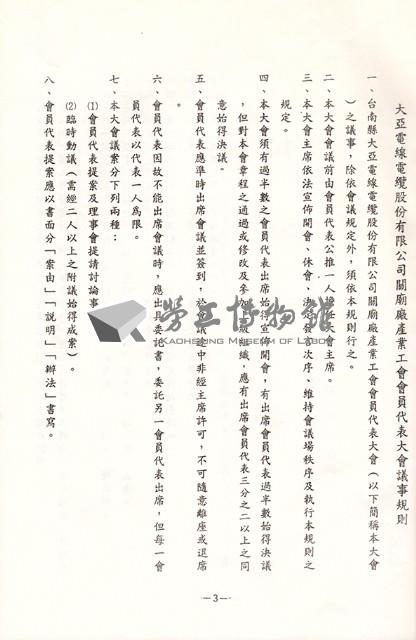 大亞電線電纜股份有限公司關廟廠產業工會會員代表大會議事規則
一、台南縣大亞電線電纜股份有限公司關廟廠產業工會會員代表大會（以下簡稱本大會
）之議事，除依會議規定外，須依本規則行之。
二、本大會會議前由會員代表公推一人擔任大會主席。
三、本大會主席依法宣佈開會、休會，決定發言次序、維持會議場秩序及執行本規則之
規定。
四、本大會須有過半數之會員代表出席始得宣佈開會，有出席會員代表過半數始得決議
，但對本會章程之通過或修改及參加上級組織，應有出席會員代表三分之二以上之同
意始得決議。
五、會員代表應準時出席會議並簽到，於會議途中非經主席許可，不可隨意離座或退席
。
六、會員代表因故不能出席會議時，應出具委託書，委託另一會員代表出席，但每一會
員代表以代表一人為限。
七、本大會議案分下列兩種：
⑴會員代表提案及理事會提請討論事
⑵臨時動議（需經二人以上之附議始得成案）。
八、會員代表提案應以書面分「案由」「說明」「辦法」書寫。
勞工博物館
KAOHSIUNG MUSEUM OF LABOR
—3—